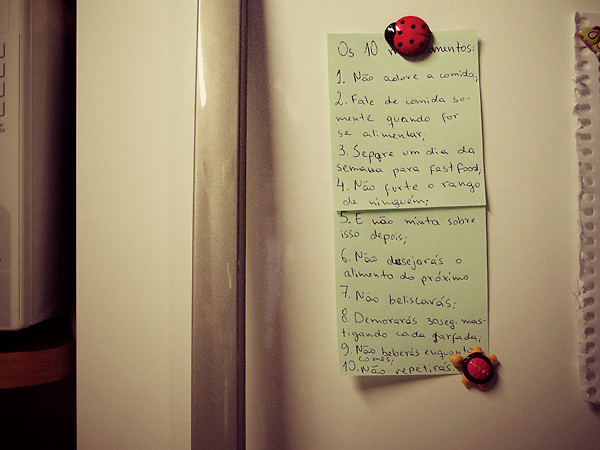 Os 10
1. Não adore a comida;
2. Fale de comida so-
mente quando for
se alimentar;
3. Separe um dia da
semana para fastfood;
4. Não furte o rango
de ninguém;
5. E não minta sobre
isso depois;
6. Não desejarás o
alimento do próximo
7. Não beliscarás;
8. Demorarás 30seg. mas-
tigando cada garfada;
9. Não beberás enquanto
comes;
10. Não repetirás